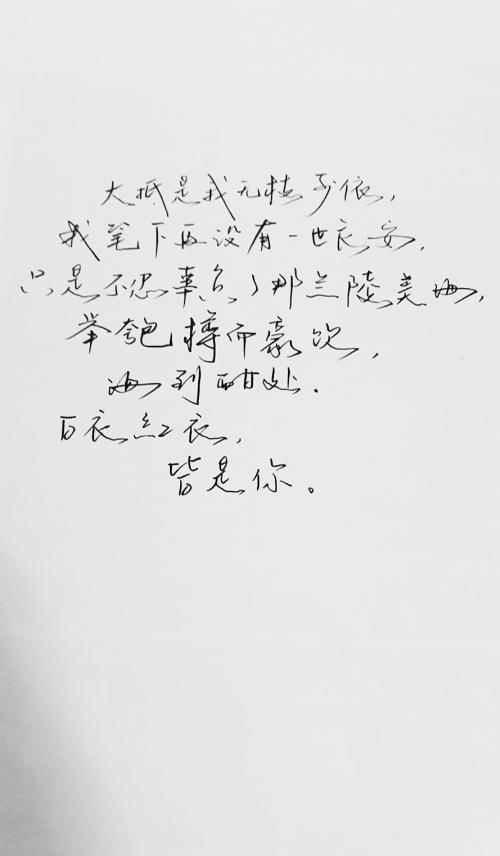 大抵是我无枝可依,
我笔下再没有一世长安,
只是不忍辜负了那兰陵美酒,
举匏樽而豪饮,
酒到酣处.
白衣红衣,
皆是你。